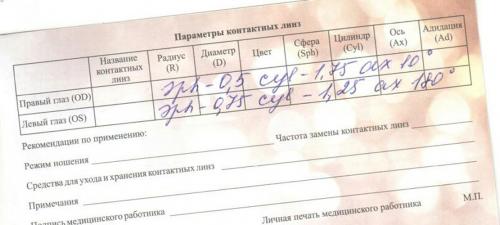 Параметры контактных линз
Название контактных линз Радиус (R) Диаметр (D) Цвет Сфера (Sph) Цилиндр (Cyl) Ось (Ax) Адидация (Ad)
Правый глаз (OD) sph -0,5 cyl -1,75 ax 10°
Левый глаз (OS) sph -0,75 cyl -1,25 ax 180°
Рекомендации по применению:
Режим ношения Частота замены контактных линз
Средства для ухода и хранения контактных линз
Примечания
Подпись медицинского работника Личная печать медицинского работника М.П.